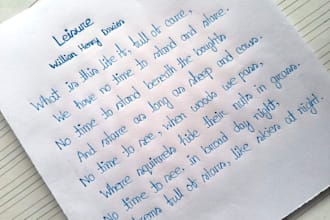 Leisure
William Henry Davies
What is this life if, full of care,
We have no time to stand and stare.
No time to stand beneath the boughs
And stare as long as sheep and cows.
No time to see, when woods we pass,
Where squirrels hide their nuts in grass.
No time to see, in broad day night.
full of stars, like skies at night